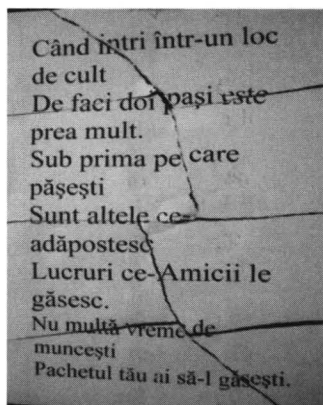 Când intri într-un loc
de cult
De faci doi pași este
prea mult.
Sub prima pe care
pășești
Sunt altele ce-
adăpostesc
Lucruri ce-Amicii le
găsesc.
Nu multă vreme de
muncești
Pachetul tău ai să-l găsești.